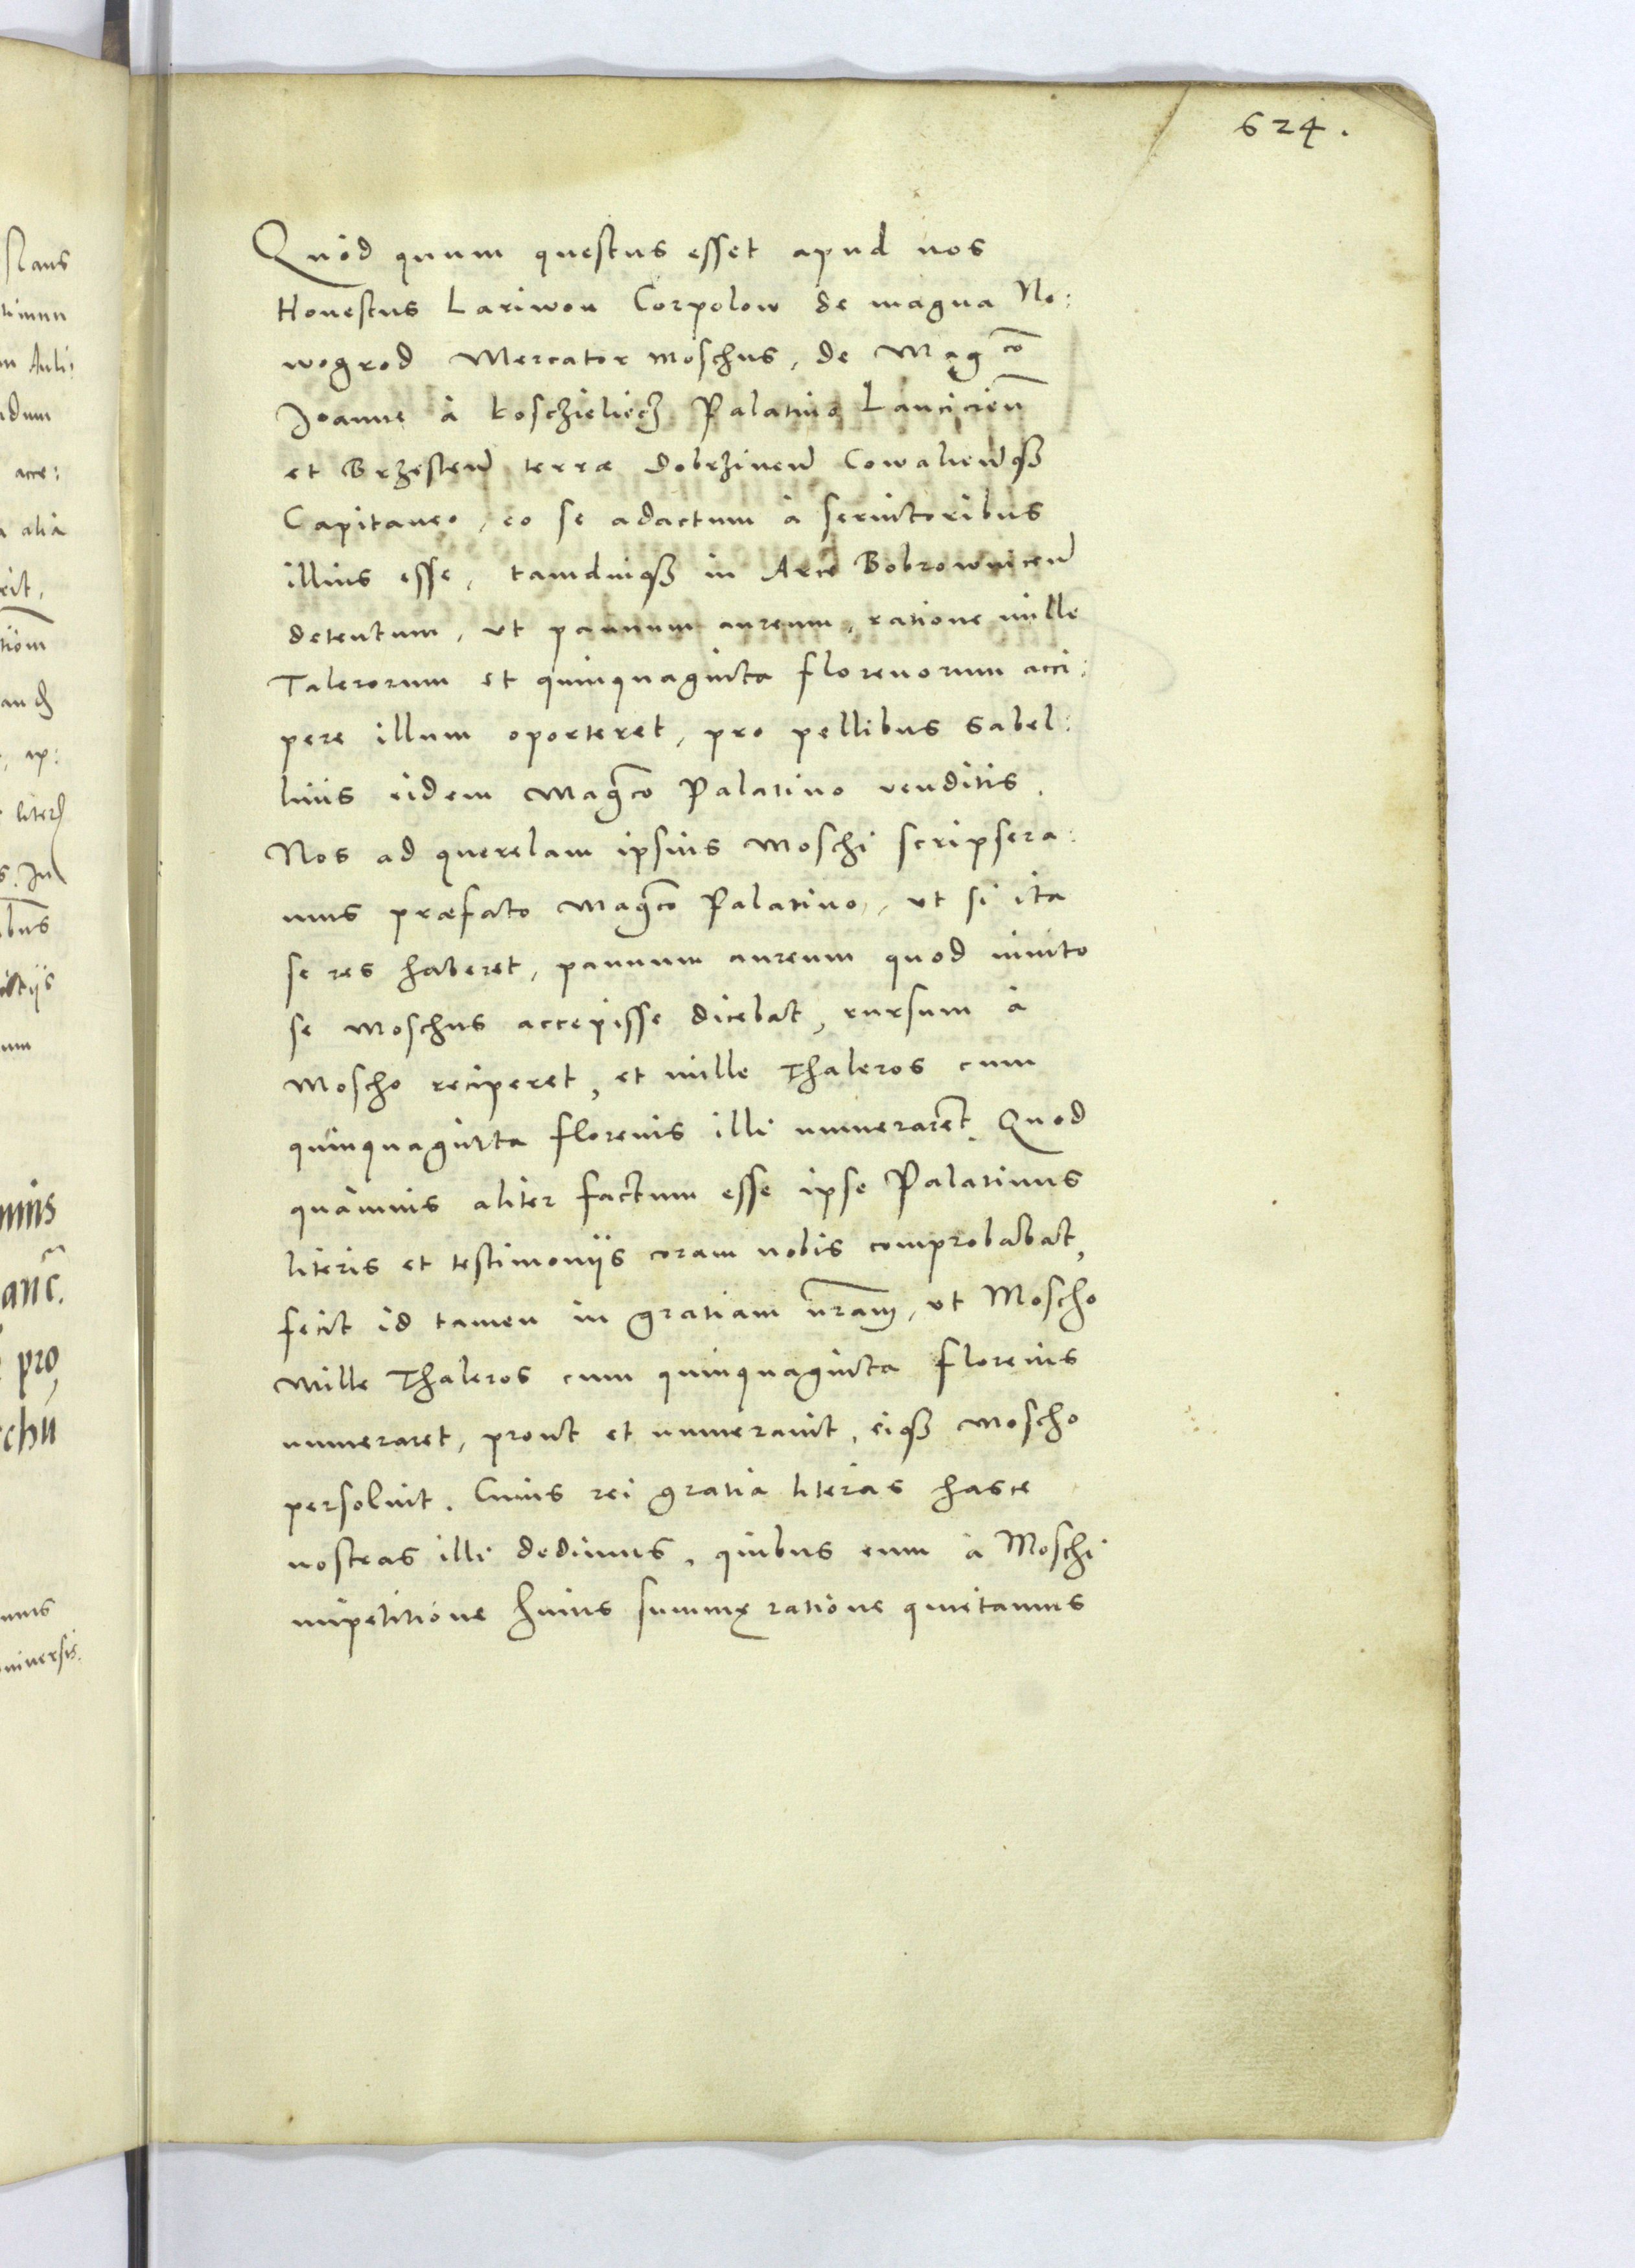 624.
Quod quum questus esset apud nos
Honestus Lariwon Corpolow de magna No:
wogrod Mercator Moschus, de Mag͞co
Joanne à Kosczielecz Palatino Lancicien̄
et Brzesten̄ terræ Dobrzinen̄ Cowalien̄qꝫ
Capitaneo, eo se adactum à seruitoribus
illius esse, tamdiuqꝫ in Arce Bobrownicen̄
detentum, ut pannum aureum, ratione mille
Talerorum et quinquaginta florenorum acci:
pere illum oporteret, pro pellibus sabel:
linis eidem Mag͞co Palatino venditis.
Nos ad querelam ipsius Moschi scripsera:
mus præfato Mag͞co Palatino, ut si ita
se res haberet, pannum aureum quod inuito
se Moschus accepisse dicebat, rursum à
Moscho reciperet, et mille Thaleros cum
quinquaginta florenis illi numeraret. Quod
quamuis aliter factum esse ipse Palatinus
literis et testimoniis coram nobis comprobabat,
fecit id tamen in gratiam nr̄am, ut Moscho
Mille Thaleros cum quinquaginta florenis
numeraret, prout et numerauit, eiqꝫ Moscho
persoluit. Cuius rei gratia literas hasce
nostras illi dedimus, quibus eum à Moschi
impetitione huius summę ratione quietamus